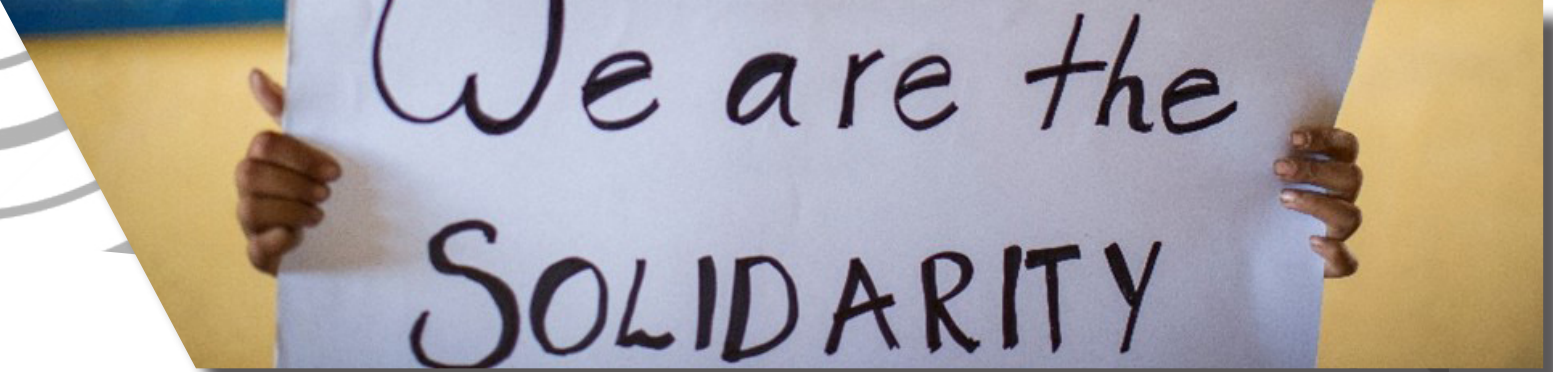 We are the
SOLIDARITY